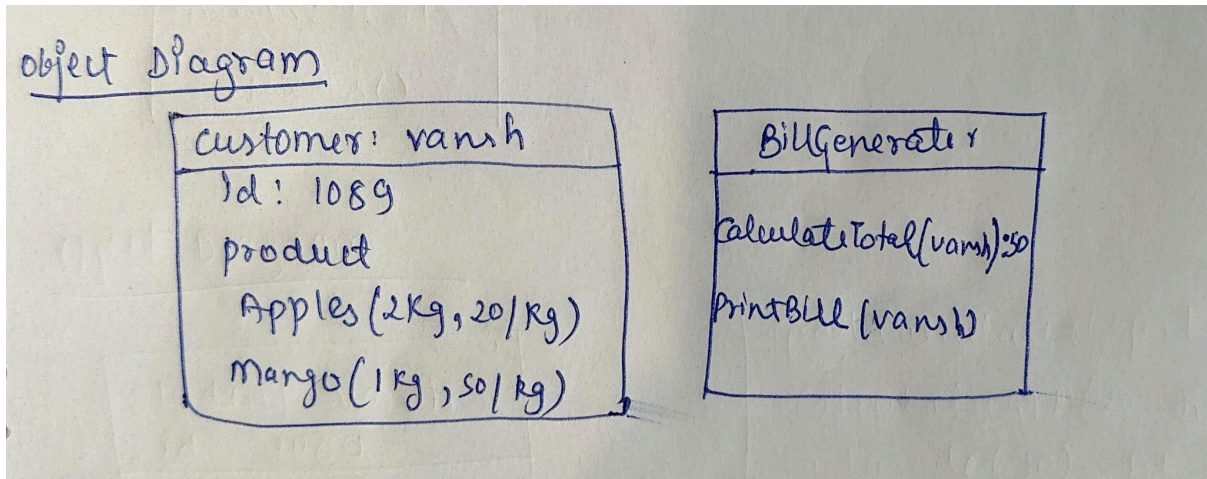 Object Diagram
Customer: vansh
Id: 1089
product
Apples (2kg, 20/kg)
Mango (1kg, 50/kg)
BillGenerater
CalculateTotal(vansh):50
PrintBill (vansh)